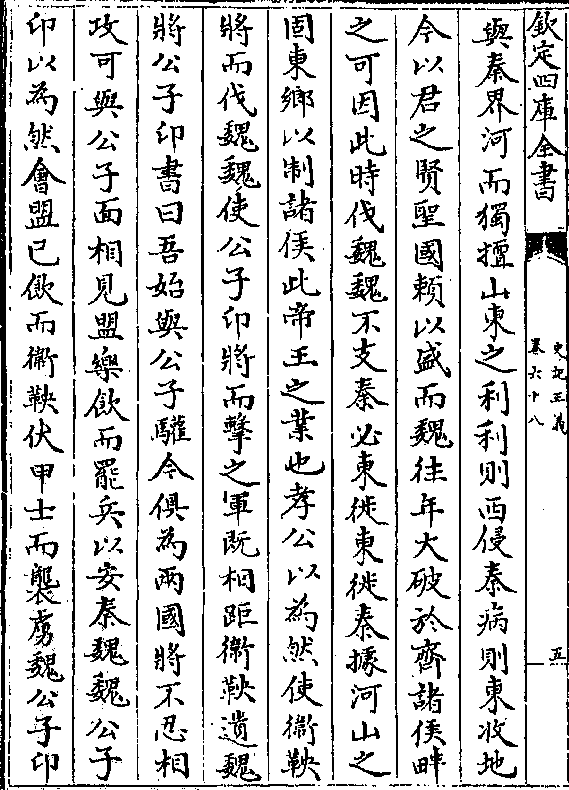 欽定四庫全書
史記正義
卷六十八
五
與秦界河而獨擅山東之利利則西侵秦病則東收地
今以君之賢聖國頼以盛而魏往年大破於齊諸侯畔
之可因此時伐魏魏不支秦必東徙東徙秦據河山之
固東鄉以制諸侯此帝王之業也孝公以為然使衞鞅
將而伐魏魏使公子卬將而擊之軍既相距衞鞅遺魏
將公子卬書曰吾始與公子驩今俱為兩國將不忍相
攻可與公子面相見盟樂飲而罷兵以安秦魏魏公子
卬以為然會盟已飲而衞鞅伏甲士而襲虜魏公子卬